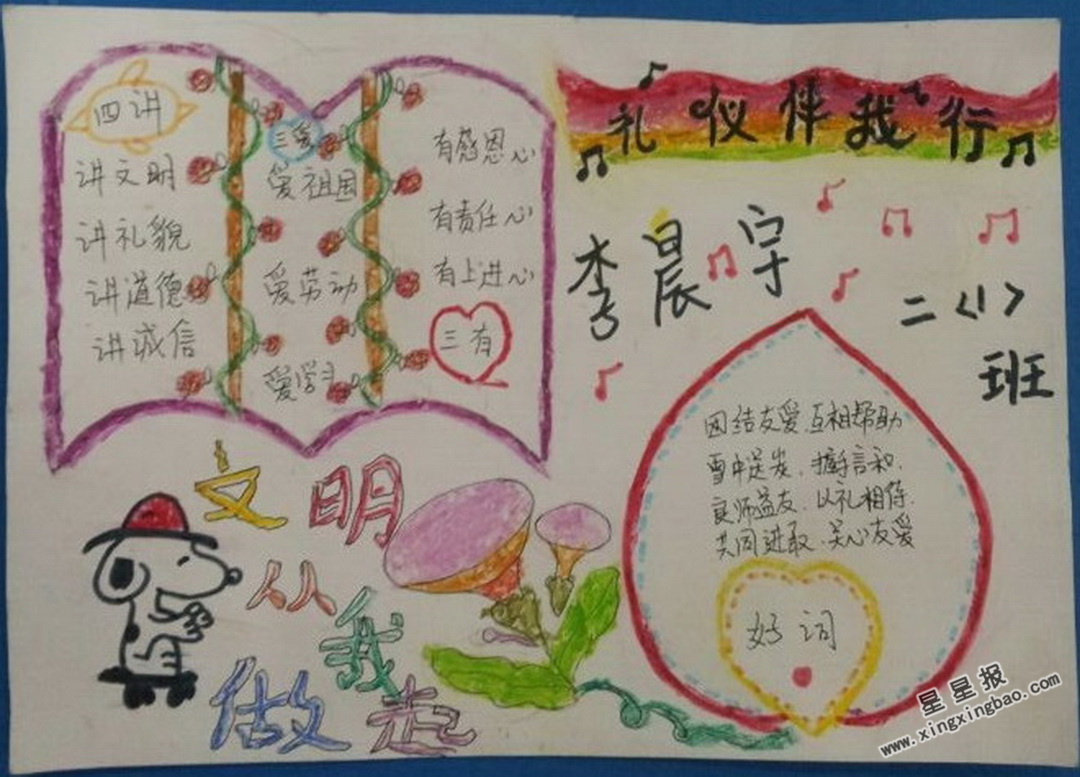 四讲
讲文明
讲礼貌
讲道德
讲诚信
三爱
爱祖国
爱劳动
爱学习
有感恩心
有责任心
有上进心
三有
礼仪伴我行
李晨宇
二<1>
班
团结友爱、互相帮助
雪中送炭、握手言和、
良师益友、以礼相待、
共同进取、关心友爱
好词
文明
从我
做起
星星报
www.xingxingbao.com